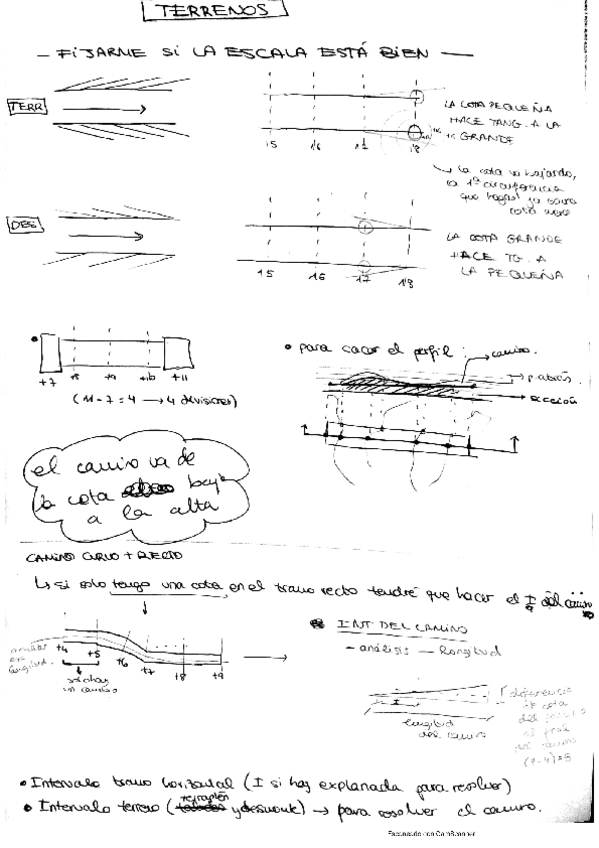 TERRENOS
- FIJARME SI LA ESCALA ESTÁ BIEN -
TERR
15 16 17 18
LA COTA PEQUEÑA
HACE TANG. A LA
GRANDE
la cota va bajando,
la 1ª circunferencia
que hagas ya
DES
15 16 17 18
LA COTA GRANDE
HACE TG. A
LA PEQUEÑA
+7 +8 +9 +10 +11
(11-7 = 4 → 4 divisiones)
• para sacar el perfil:
camino.
sección
el camino va de
la cota baja
a la alta
CAMINO CURVO + RECTO
↳ si solo tengo una cota en el tramo recto tendré que hacer el I del camino
+4 +5 +6 +7 +8 +9
INT DEL CAMINO
- análisis - longitud
longitud
del camino
diferencia
de cota
del
al final
del camino
• Intervalo tramo horizontal (I si hay explanada para resolver)
• Intervalo terreno (terraplén y desmonte) → para resolver el camino.
Escaneado con CamScanner